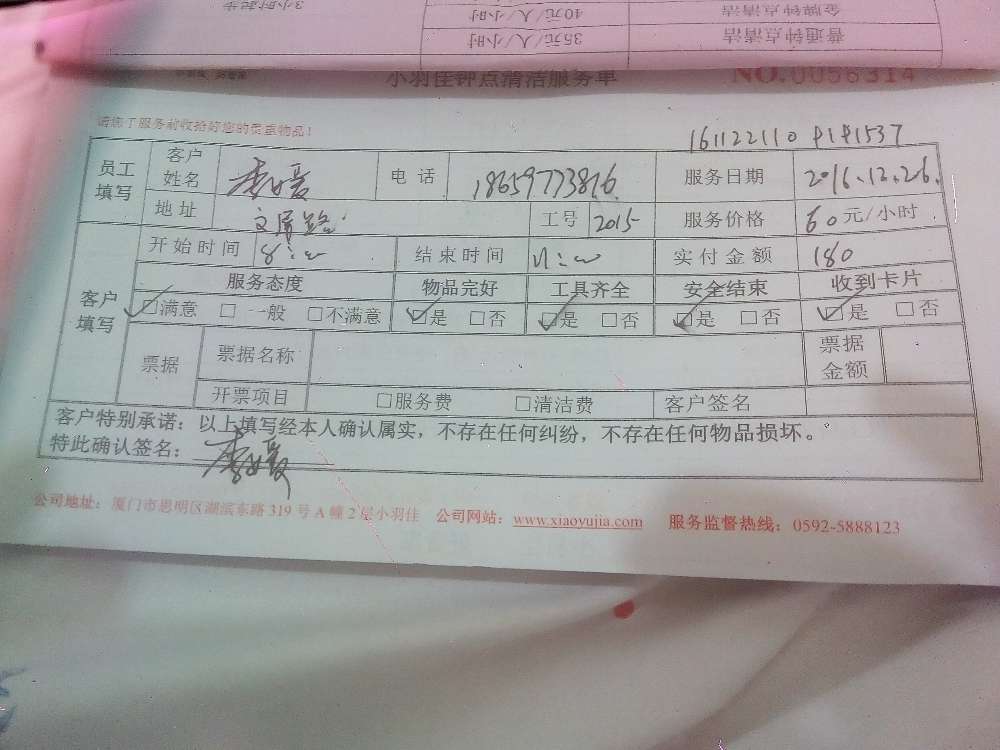 3小时起步
40元/人/小时
金牌钟点清洁
35元/人/小时
普通钟点清洁
小羽佳钟点清洁服务单 NO.0056314
请您于服务前收拾好您的贵重物品！
161122110
员工填写 客户姓名 李媛 电话 18659773816 服务日期 2016.12.26.
地址 文屏路 工号 2015 服务价格 60元/小时
客户填写 开始时间 8:00 结束时间 11:00 实付金额 180
服务态度 物品完好 工具齐全 安全结束 收到卡片
☑满意 □一般 □不满意 ☑是 □否 ☑是 □否 ☑是 □否 ☑是 □否
票据 票据名称 票据金额
开票项目 □服务费 □清洁费 客户签名
客户特别承诺：以上填写经本人确认属实，不存在任何纠纷，不存在任何物品损坏。
特此确认签名：李媛
公司地址：厦门市思明区湖滨东路319号A幢2层小羽佳 公司网站：www.xiaoyujia.com 服务监督热线：0592-5888123